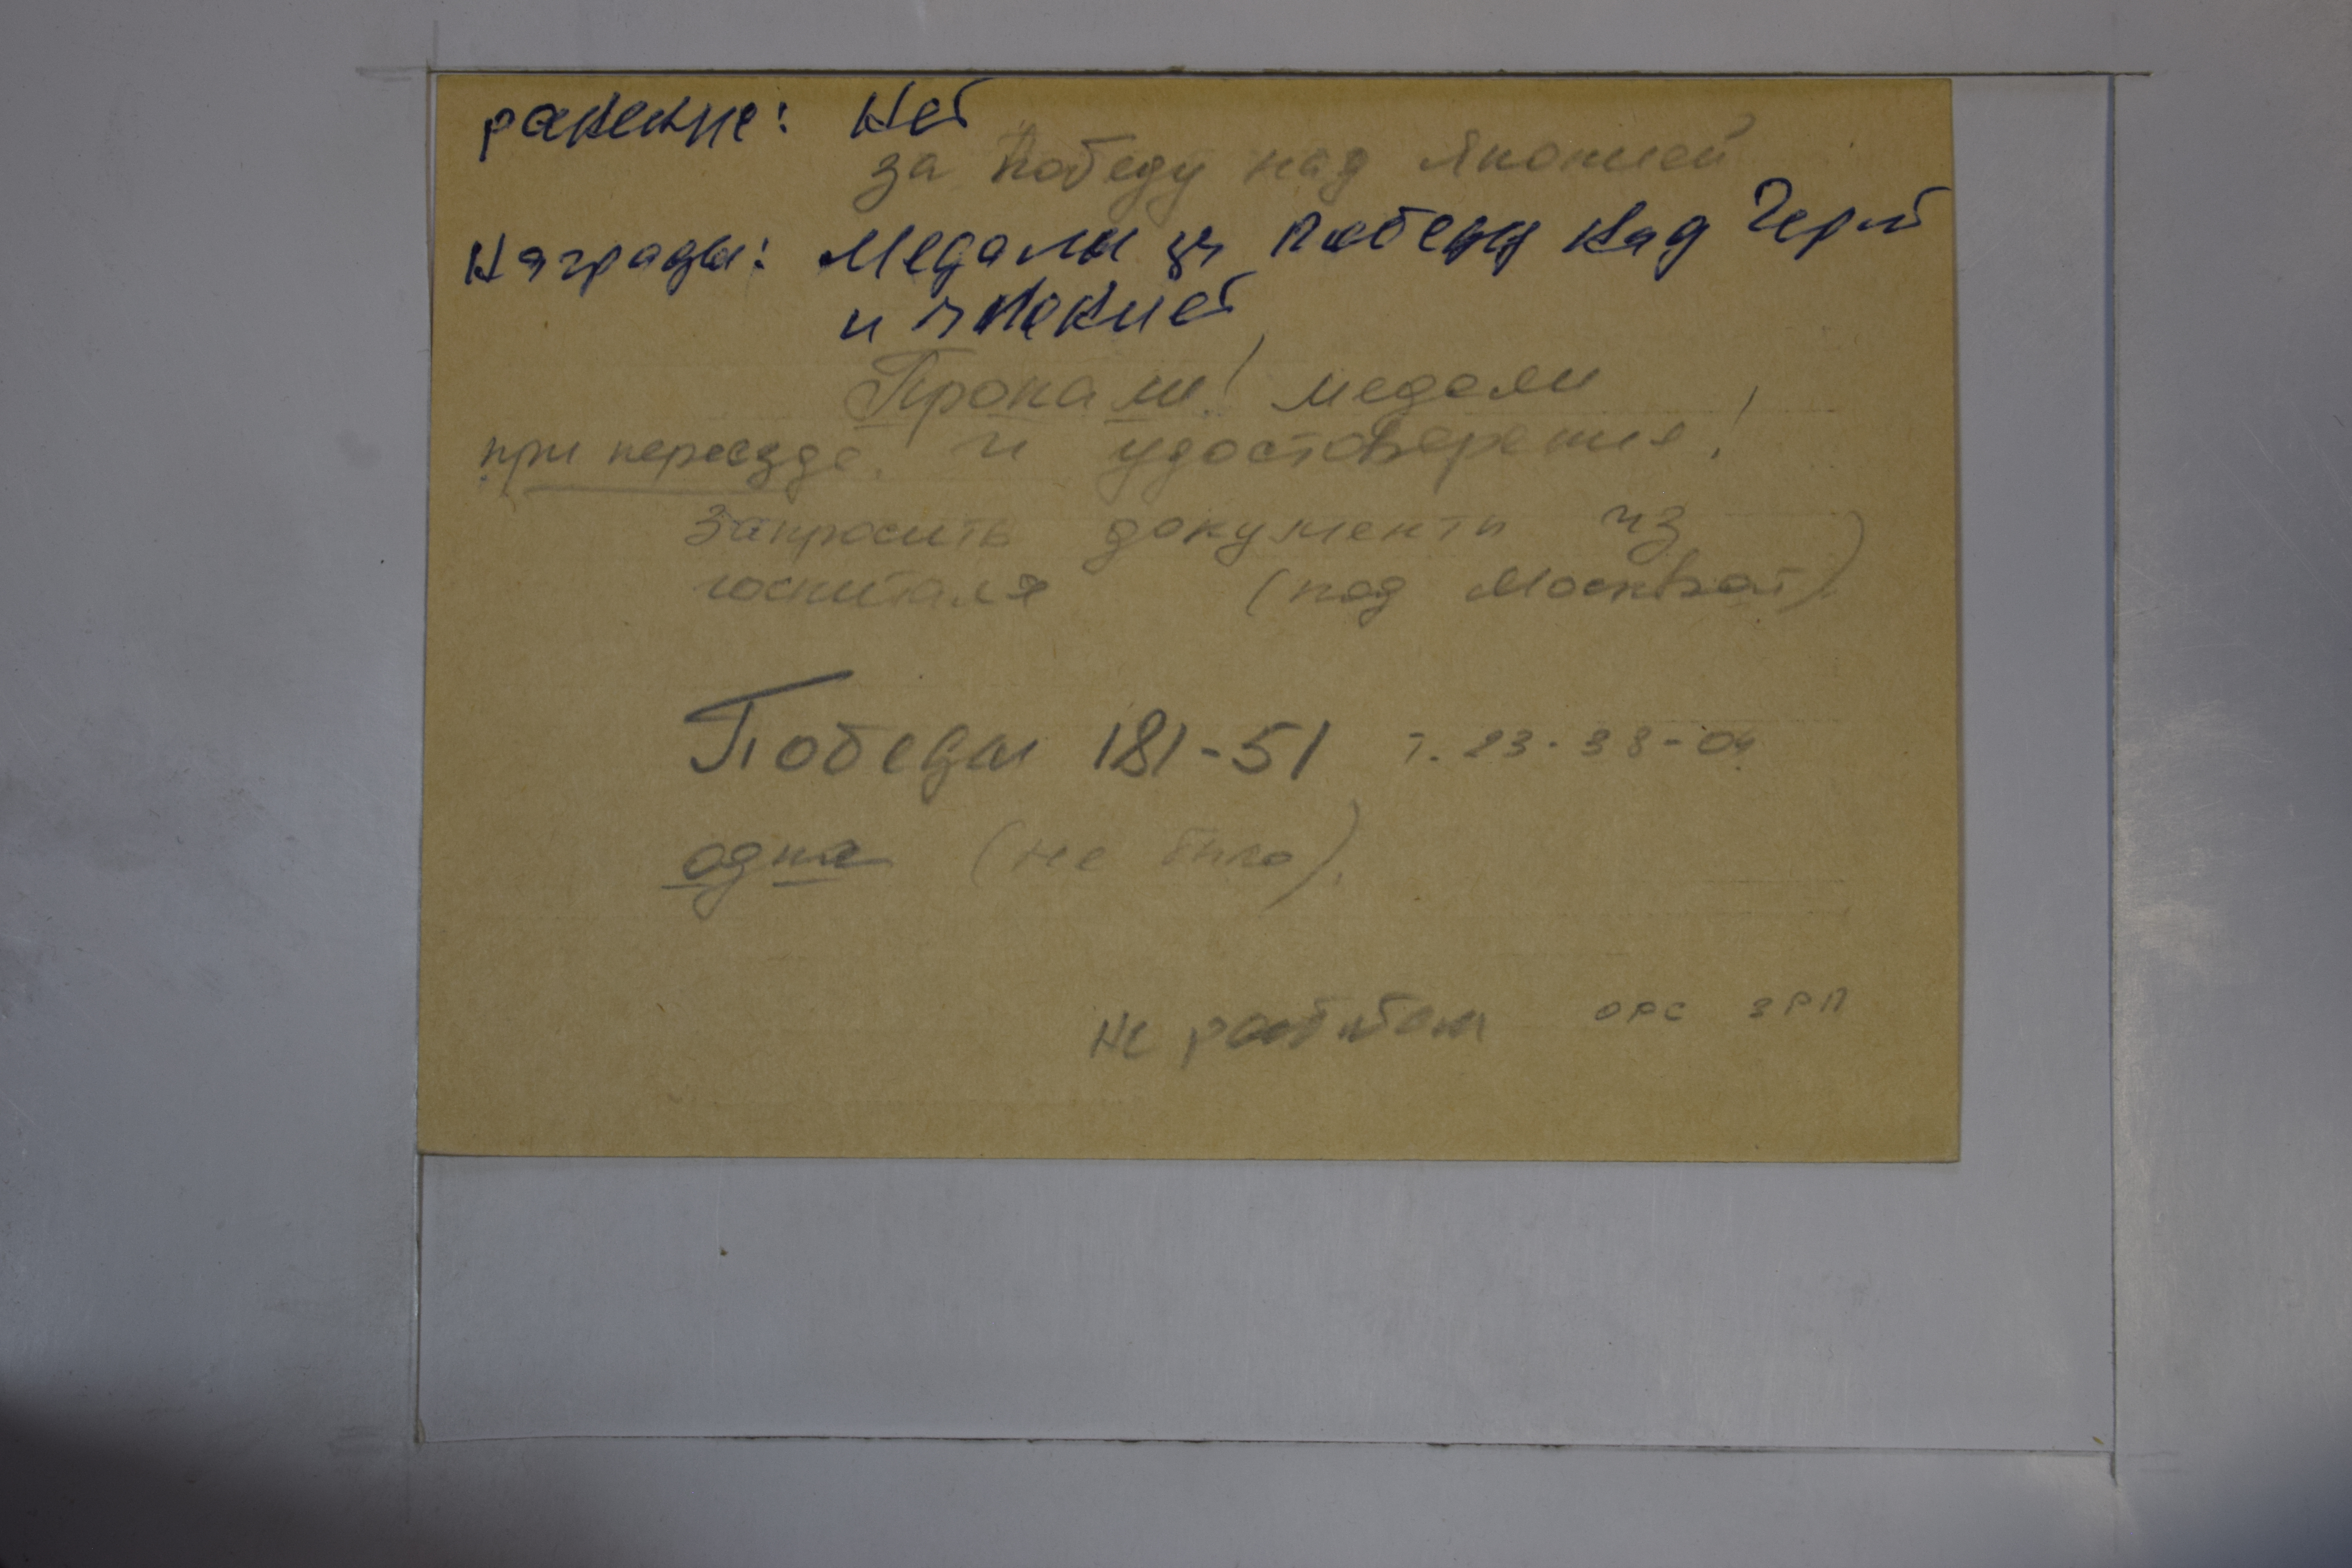 ранение: Нет
за победу над Японией
Награды: Медали за победу над Герм
и Японией
Пропали! медали
при переезде. и удостоверение!
Запросить документы из
госпиталя (под Москвой).
Победы 181-51 т. 23-38-04
одна (не было).
не работает ОРС ЗРП